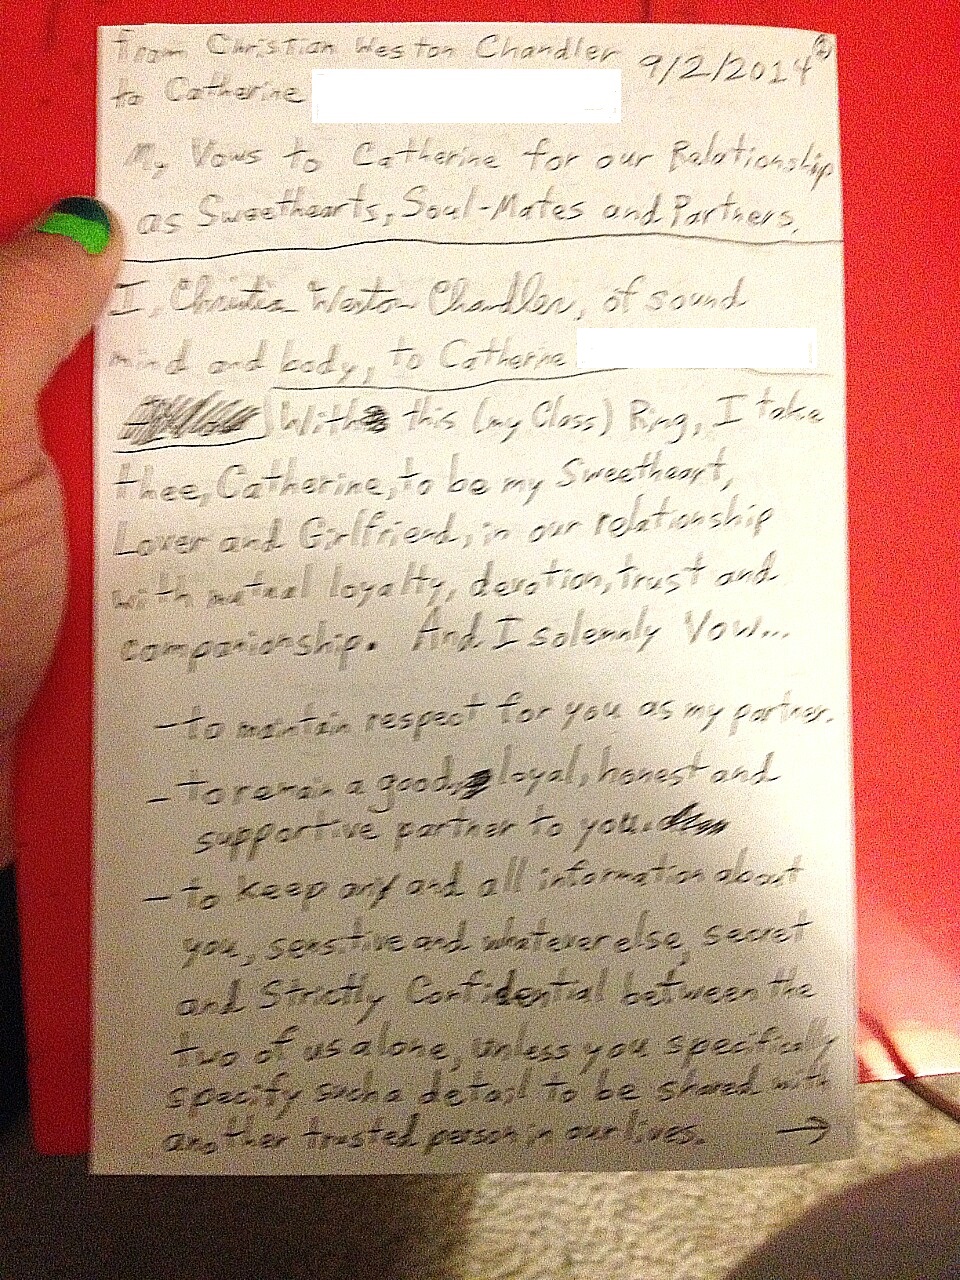 From Christian Weston Chandler 9/2/2014
to Catherine
My Vows to Catherine for our Relationship
as Sweethearts, Soul-Mates and Partners.
I, Christian Weston Chandler, of sound
mind and body, to Catherine
With this (my Class) Ring, I take
thee, Catherine, to be my Sweetheart,
Lover and Girlfriend, in our relationship
with mutual loyalty, devotion, trust and
companionship. And I solemnly Vow...
- to maintain respect for you as my partner.
- to remain a good, loyal, honest and
supportive partner to you.
- to keep any and all information about
you, sensitive and whatever else, secret
and Strictly Confidential between the
two of us alone, unless you specifically
specify such a detail to be shared with
another trusted person in our lives. →